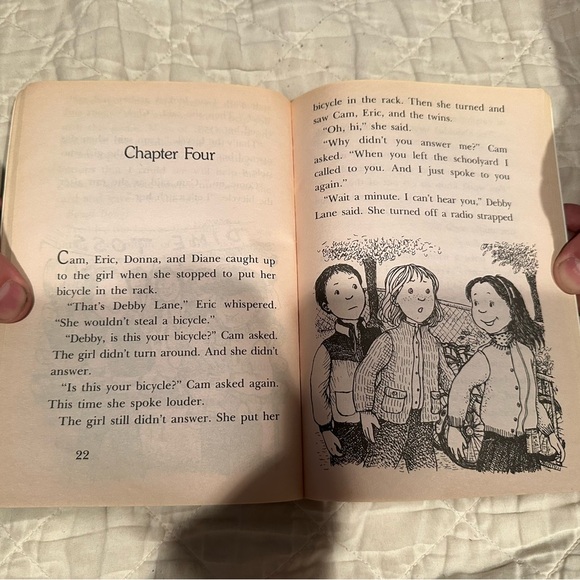 Chapter Four
Cam, Eric, Donna, and Diane caught up
to the girl when she stopped to put her
bicycle in the rack.
“That’s Debby Lane,” Eric whispered.
“She wouldn’t steal a bicycle.”
“Debby, is this your bicycle?” Cam asked.
The girl didn’t turn around. And she didn’t
answer.
“Is this your bicycle?” Cam asked again.
This time she spoke louder.
The girl still didn’t answer. She put her
22
bicycle in the rack. Then she turned and
saw Cam, Eric, and the twins.
“Oh, hi,” she said.
“Why didn’t you answer me?” Cam
asked. “When you left the schoolyard I
called to you. And I just spoke to you
again.”
“Wait a minute. I can’t hear you,” Debby
Lane said. She turned off a radio strapped